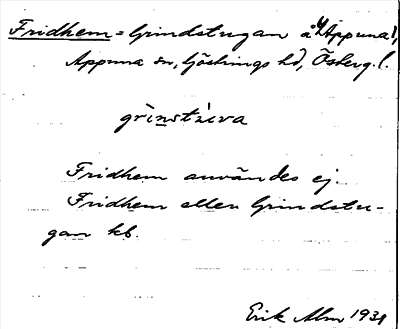 Fridhem = Grindstugan å Appuna,
Appuna sn, Göstrings hd, Österg. l.
Fridhem användes ej.
Fridhem eller Grindstu-
gan kb.
Erik Alm 1931